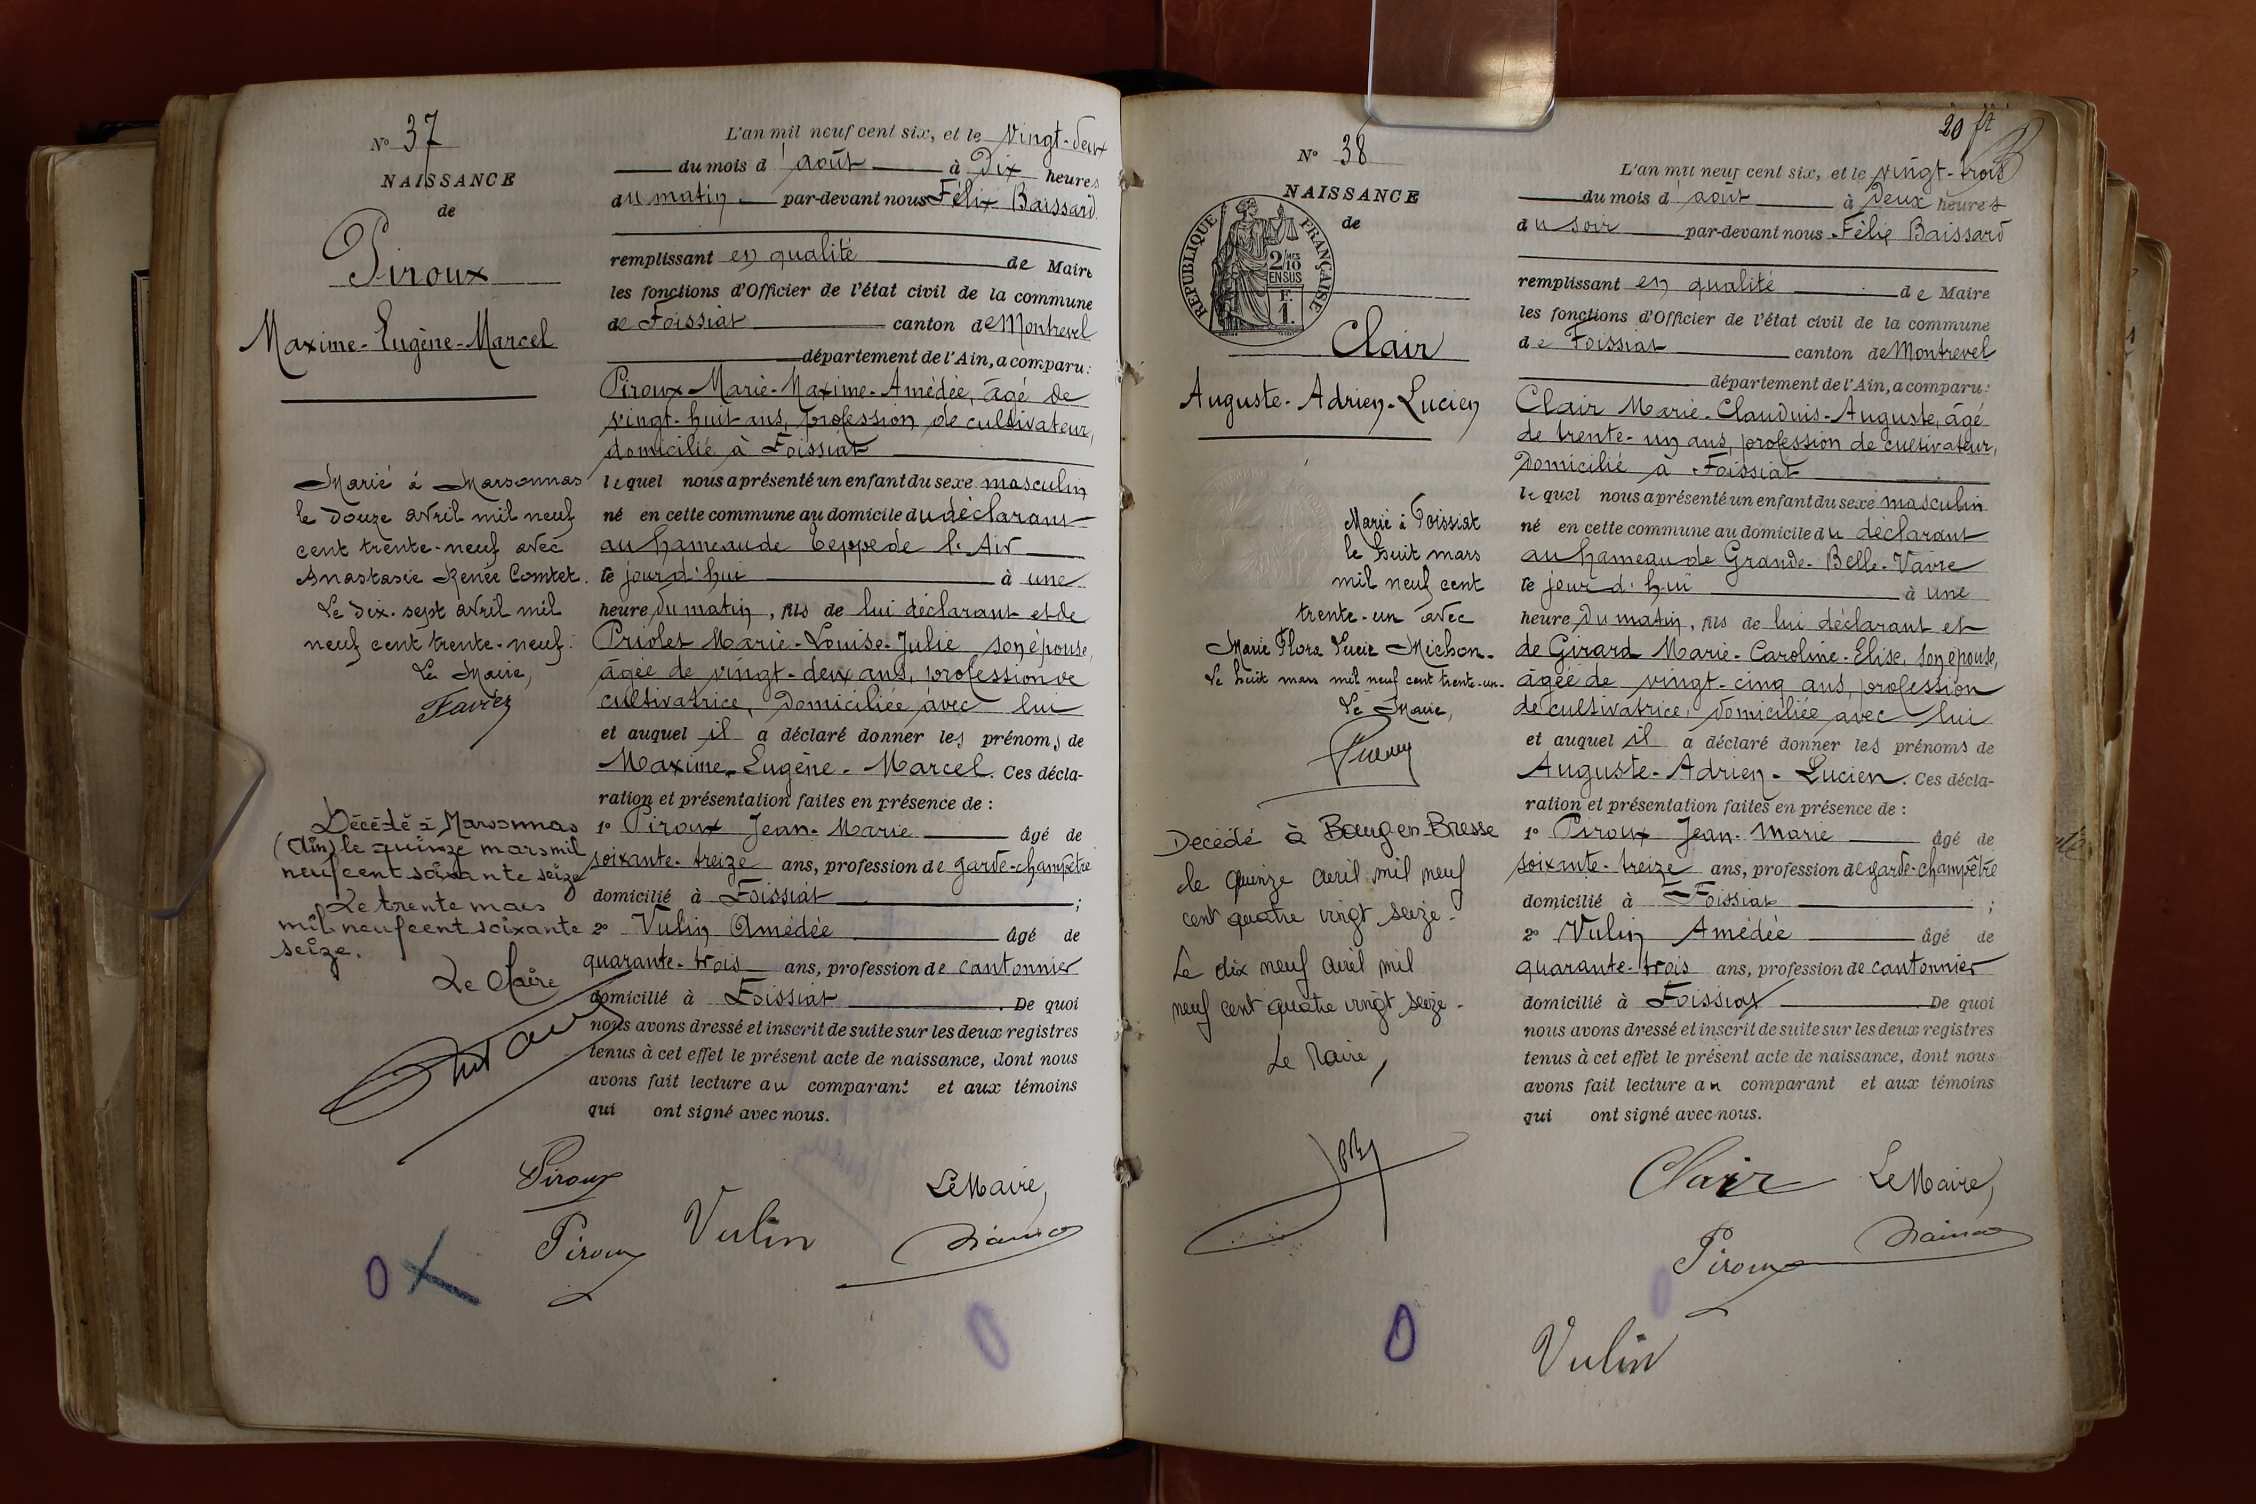 N° 37
NAISSANCE
de
Piroux
Maxime-Eugène-Marcel
Marié à Marsonnas
le douze avril mil neuf
cent trente-neuf avec
Anastasie Renée Comtet.
Le dix-sept avril mil
neuf cent trente-neuf.
Le Maire,
Favier
Décédé à Marsonnas
(Ain) le quinze mars mil
neuf cent soixante seize
Le trente mars
mil neuf cent soixante
seize.
Le Maire
L'an mil neuf cent six, et le vingt-deux
du mois d'août à Dix heures
du matin par-devant nous Félix Baissard
remplissant en qualité de Maire
les fonctions d'Officier de l'état civil de la commune
de Foissiat canton de Montrevel
département de l'Ain, a comparu:
Piroux Marie-Maxime-Amédée, âgé de
vingt-huit ans, profession de cultivateur,
domicilié à Foissiat
lequel nous a présenté un enfant du sexe masculin
né en cette commune au domicile du déclarant
au hameau de Teppe de l'Air
le jour d'hui à une
heure du matin, fils de lui déclarant et de
Priolet Marie-Louise-Julie son épouse,
âgée de vingt-deux ans, profession de
cultivatrice, domiciliée avec lui
et auquel il a déclaré donner les prénoms de
Maxime-Eugène-Marcel. Ces décla-
ration et présentation faites en présence de :
1° Piroux Jean-Marie âgé de
soixante-treize ans, profession de garde-champêtre
domicilié à Foissiat ;
2° Vulin Amédée âgé de
quarante-trois ans, profession de cantonnier
domicilié à Foissiat. De quoi
nous avons dressé et inscrit de suite sur les deux registres
tenus à cet effet le présent acte de naissance, dont nous
avons fait lecture au comparant et aux témoins
qui ont signé avec nous.
Piroux
Le Maire,
Piroux
Vulin
20 ft
N° 38
NAISSANCE
de
RÉPUBLIQUE FRANÇAISE
2/10 MES
EN SUS
F.
1.
Clair
Auguste-Adrien-Lucien
Marié à Foissiat
le huit mars
mil neuf cent
trente-un avec
Marie Flora Lucie Michon.
Le huit mars mil neuf cent trente-un.
Le Maire,
Décédé à Bourg en Bresse
le quinze avril mil neuf
cent quatre vingt seize.
Le dix neuf avril mil
neuf cent quatre vingt seize.
Le Maire,
L'an mil neuf cent six, et le vingt-trois
du mois d'août à Deux heures
du soir par-devant nous Félix Baissard
remplissant en qualité de Maire
les fonctions d'Officier de l'état civil de la commune
de Foissiat canton de Montrevel
département de l'Ain, a comparu:
Clair Marie-Claudius-Auguste, âgé
de trente-un ans, profession de cultivateur,
domicilié à Foissiat
lequel nous a présenté un enfant du sexe masculin
né en cette commune au domicile du déclarant
au hameau de Grande-Belle-Vavre
le jour d'hui à une
heure du matin, fils de lui déclarant et
de Girard Marie-Caroline-Elise, son épouse,
âgée de vingt-cinq ans, profession
de cultivatrice, domiciliée avec lui
et auquel il a déclaré donner les prénoms de
Auguste-Adrien-Lucien. Ces décla-
ration et présentation faites en présence de :
1° Piroux Jean-Marie âgé de
soixante-treize ans, profession de garde-champêtre
domicilié à Foissiat ;
2° Vulin Amédée âgé de
quarante-trois ans, profession de cantonnier
domicilié à Foissiat De quoi
nous avons dressé et inscrit de suite sur les deux registres
tenus à cet effet le présent acte de naissance, dont nous
avons fait lecture au comparant et aux témoins
qui ont signé avec nous.
Clair Le Maire,
Piroux
Vulin